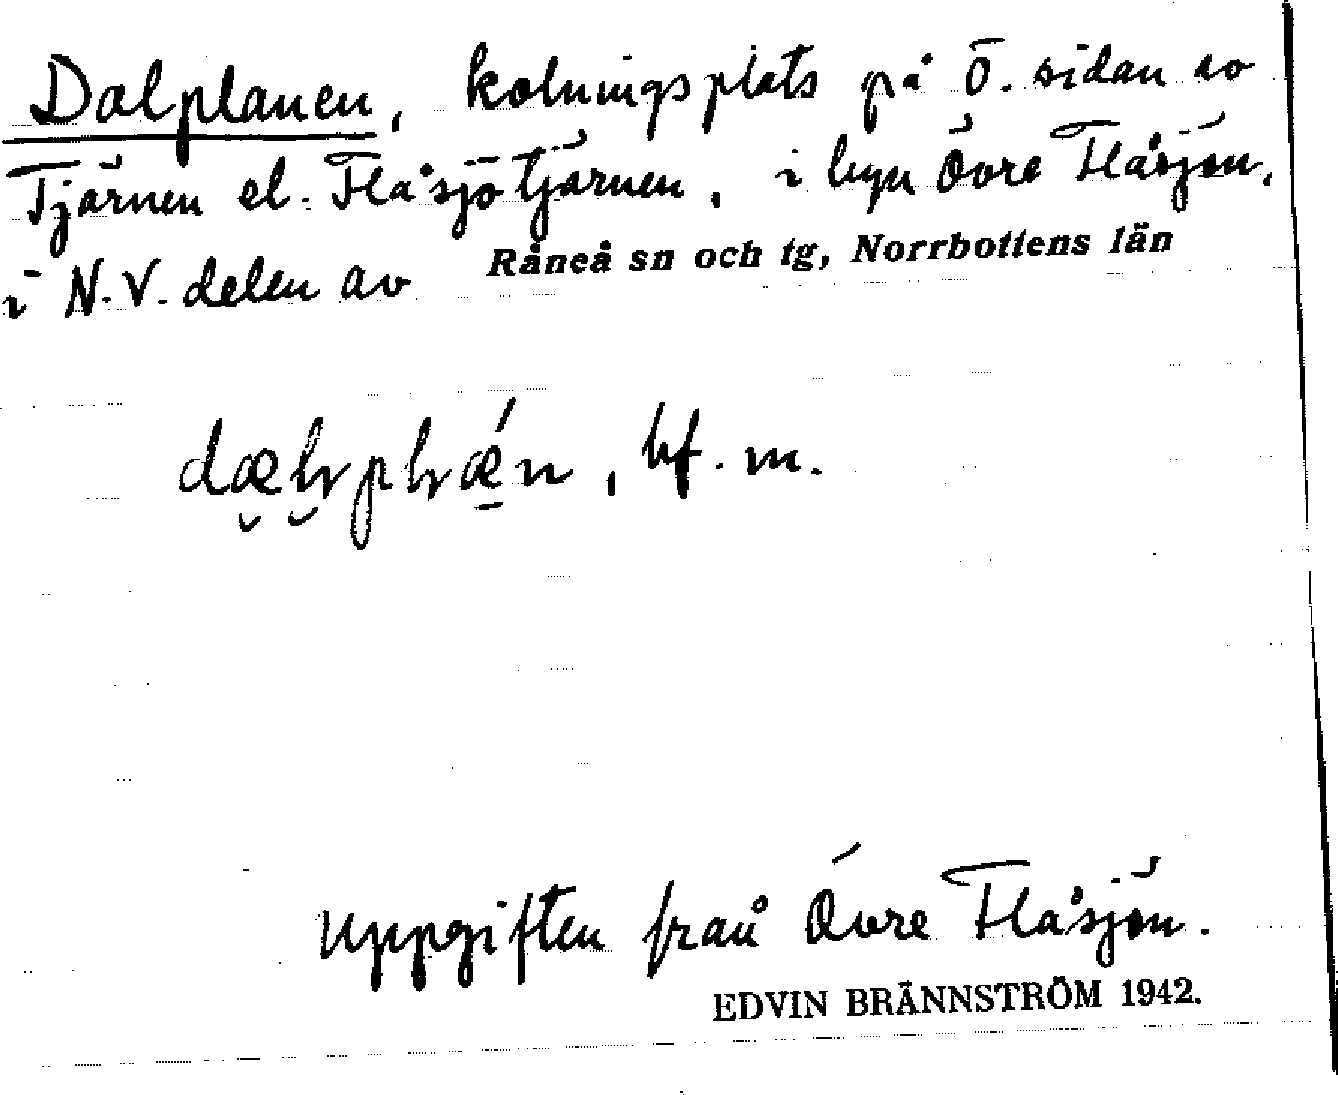 Dalplanen, kolningsplats på Ö. sidan av
Tjärnen el. Flåsjötjärnen, i byn Övre Flåsjön,
i N.V. delen av Råneå sn och tg, Norrbottens län
bf. m.
Uppgiften från Övre Flåsjön.
EDVIN BRÄNNSTRÖM 1942.